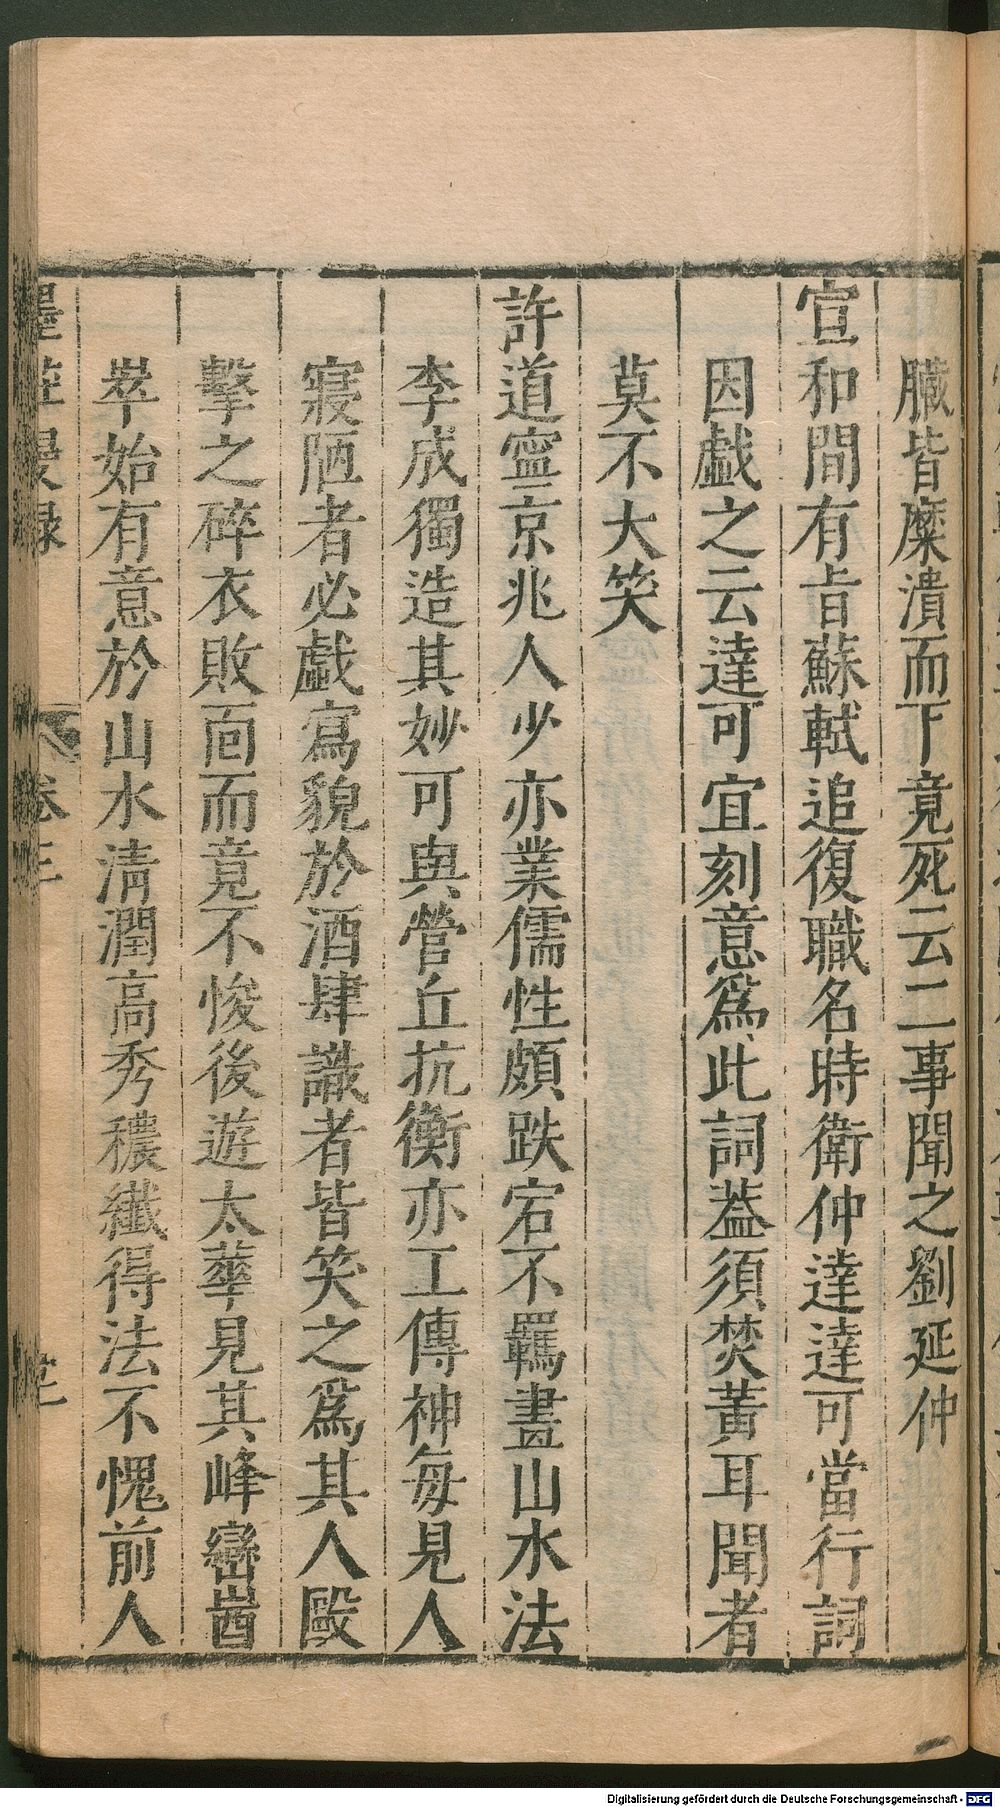 臓皆糜潰而下竟死云二事聞之劉延仲
宣和間有㫖蘇軾追復職名時衛仲達達可當行詞
因戱之云達可宜刻意爲此詞葢須焚黃耳聞者
莫不大笑
許道寧京兆人少亦業儒性頗跌宕不羈畫山水法
李成獨造其妙可與營丘抗衡亦工傳神每見人
寢陋者必戱寫貌於酒肆識者皆笑之爲其人毆
擊之碎衣敗面而竟不悛後遊太華見其峰巒崷
崒始有意於山水清潤高秀穠纖得法不愧前人
墨莊漫録 卷三
Digitalisierung gefördert durch die Deutsche Forschungsgemeinschaft - DFG